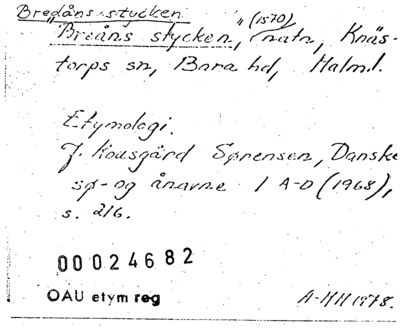 Bredåns stycken
"Breåns stycken," (1570) natn, Knäs-
torps sn, Bara hd, Malm.l.
Etymologi.
J. Kousgård Sørensen, Danske
sø- og ånavne 1 A-D (1968),
s. 216.
00024682
OAU etym reg
A-HH 1978.